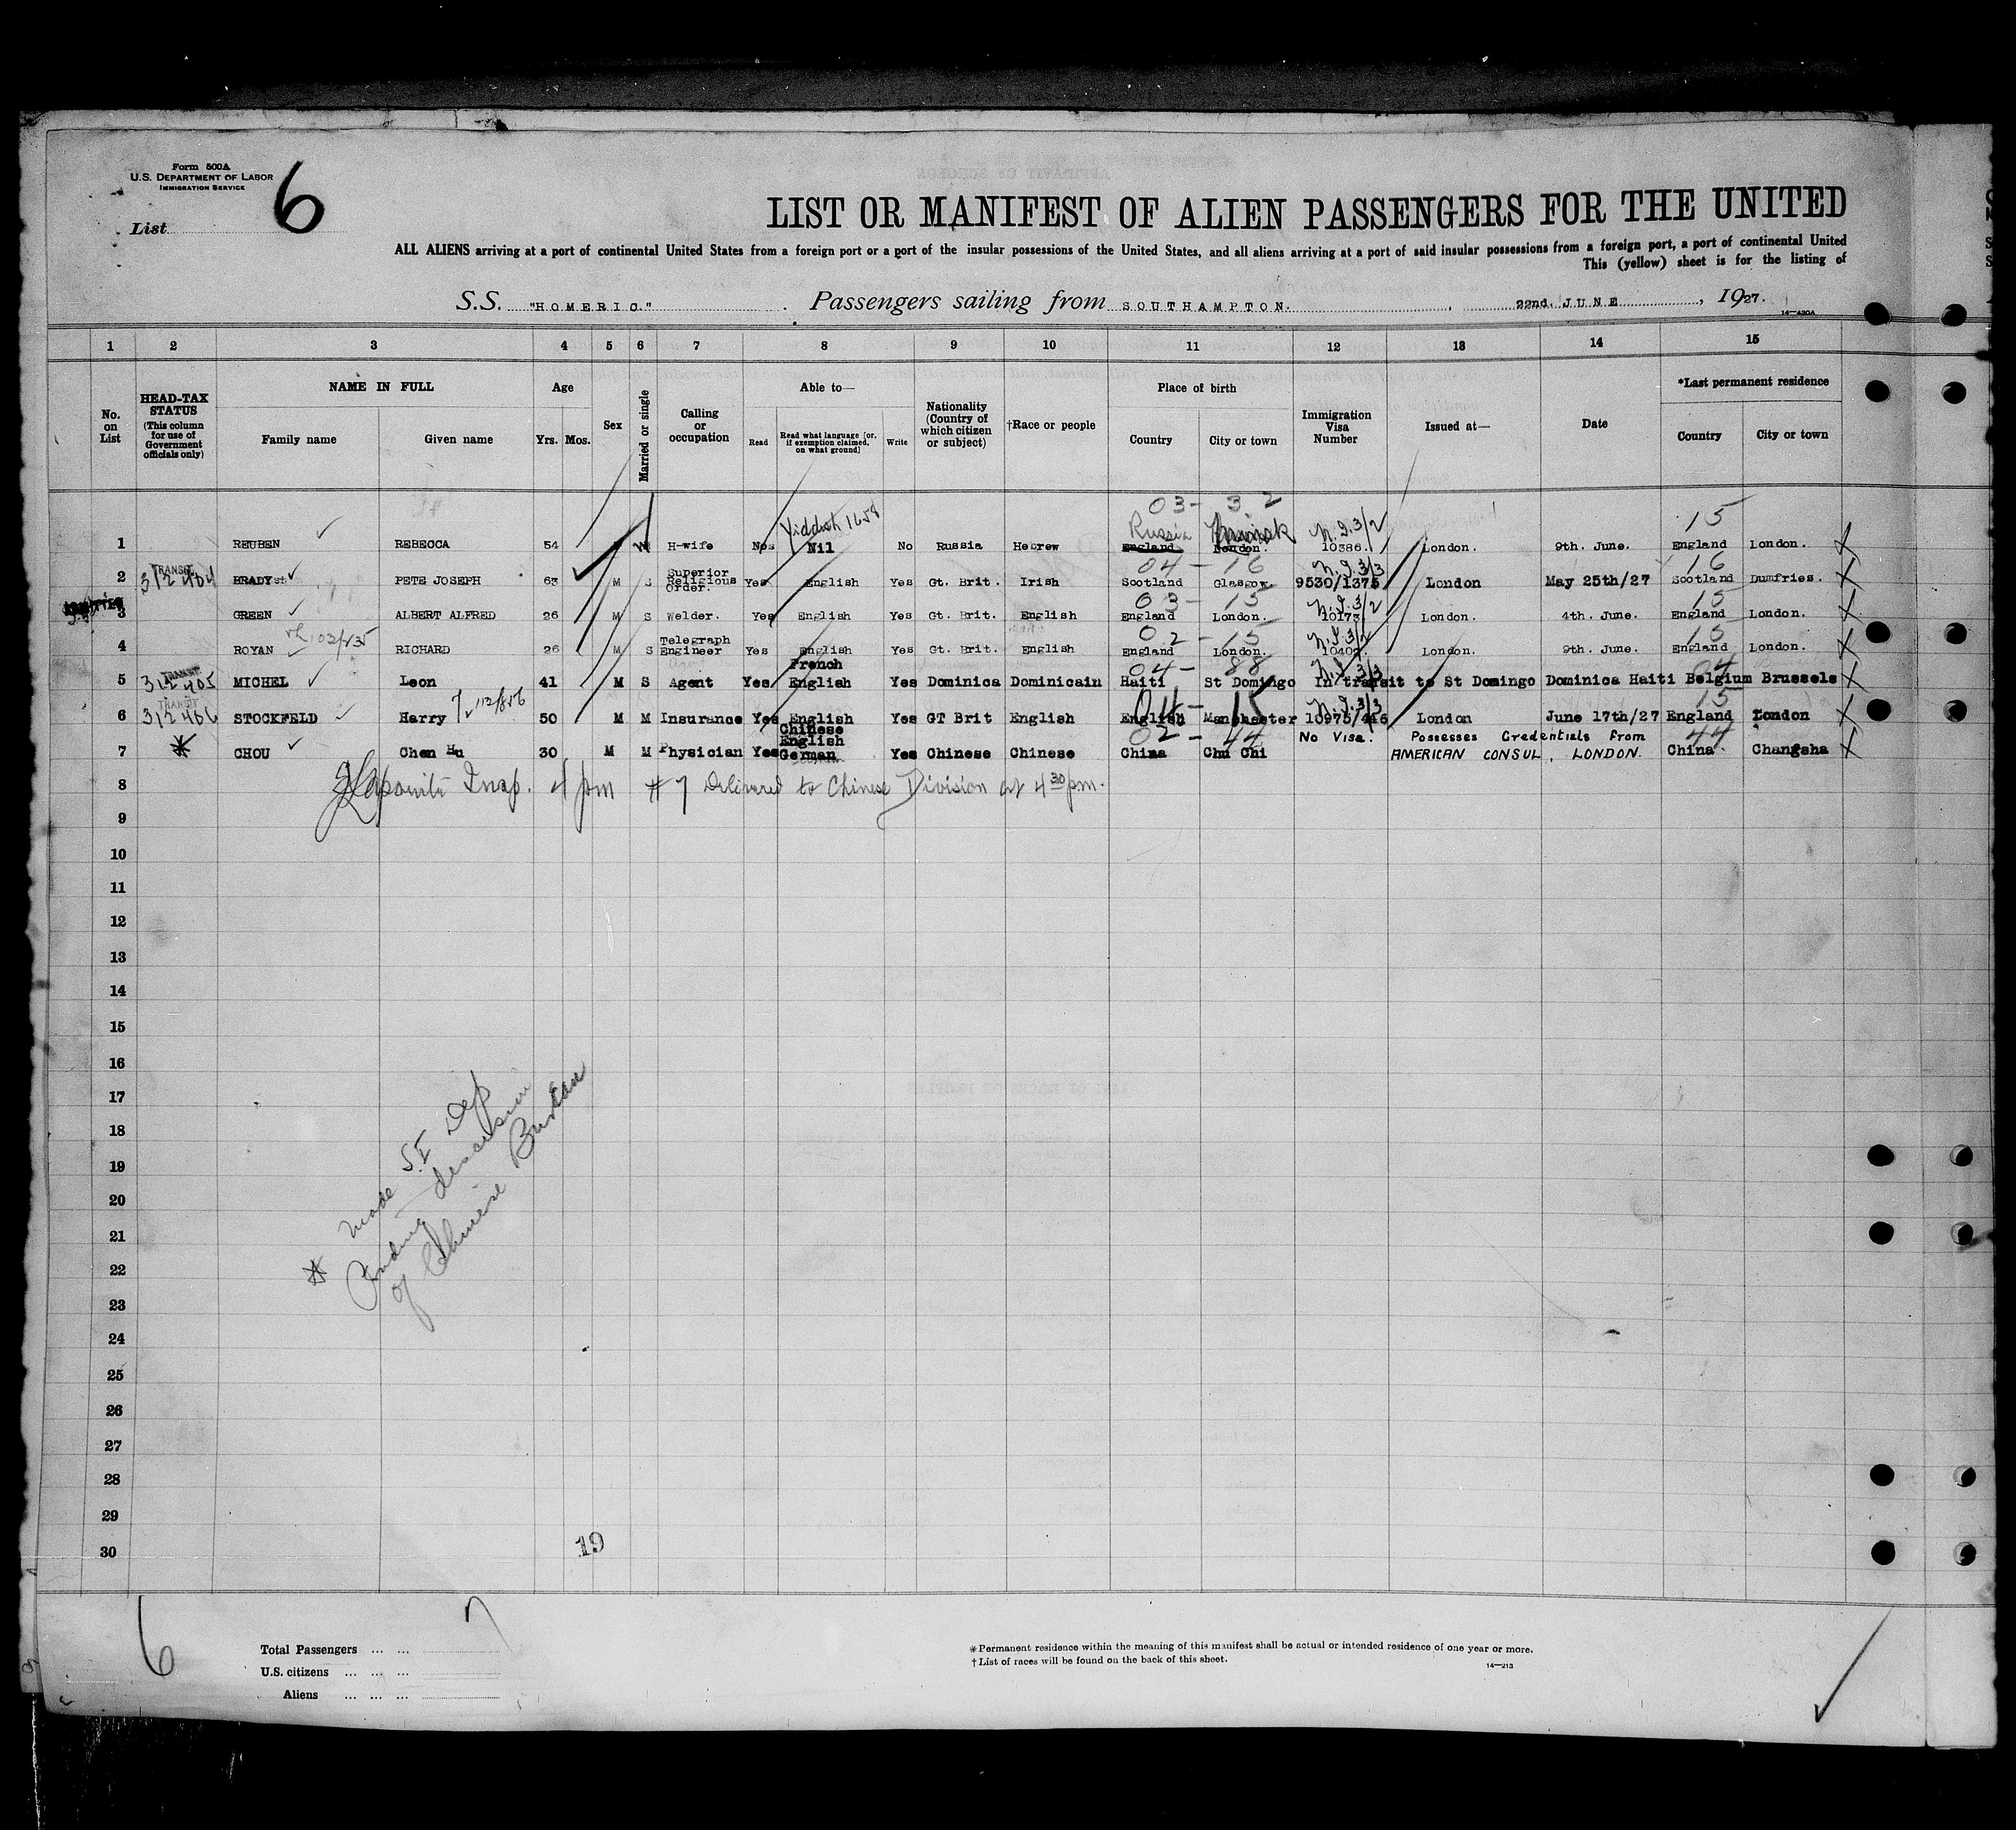 Form 500A
U.S. DEPARTMENT OF LABOR
IMMIGRATION SERVICE
List 6
LIST OR MANIFEST OF ALIEN PASSENGERS FOR THE UNITED
ALL ALIENS arriving at a port of continental United States from a foreign port or a port of the insular possessions of the United States, and all aliens arriving at a port of said insular possessions from a foreign port, a port of continental United
This (yellow) sheet is for the listing of
S.S. "HOMERIC." Passengers sailing from SOUTHAMPTON. , 22nd. JUNE , 1927.
14—430A
1 2 3 4 5 6 7 8 9 10 11 12 13 14 15
No. on List
HEAD-TAX STATUS (This column for use of Government officials only)
NAME IN FULL
Family name Given name
Age
Yrs. Mos.
Sex
Married or single
Calling or occupation
Able to—
Read Read what language [or, if exemption claimed, on what ground] Write
Nationality (Country of which citizen or subject)
†Race or people
Place of birth
Country City or town
Immigration Visa Number
Issued at—
Date
*Last permanent residence
Country City or town
03- 32 15
Yiddish 1658 Russia N.Q.3/2
1 REUBEN REBECCA 54 W H-wife Nos Nil No Russia Hebrew England London. 10386. London. 9th. June. England London. X
TRANSIT 04-16 N.Q.3/3 16
2 312404 BRADY st PETE JOSEPH 63 M S Superior Religious Order. Yes English Yes Gt. Brit. Irish Scotland Glasgow 9530/1375 London May 25th/27 Scotland Dumfries. X
03-15 N.Q.3/2 15
3 GREEN ALBERT ALFRED 26 M S Welder. Yes English Yes Gt. Brit. English England London. 10173. London. 4th. June. England London. X
103/435 02-15 N.Q.3/2 15
4 ROYAN RICHARD 26 M S Telegraph Engineer Yes English Yes Gt. Brit. English England London. 10402. London. 9th. June. England London. X
TRANSIT French 04-88 N.Q.3/3 04
5 312405 MICHEL Leon 41 M S Agent Yes English Yes Dominica Dominicain Haiti St Domingo In transit to St Domingo Dominica Haiti Belgium Brussels X
TRANSIT 04-15 N.Q.3/3 15
6 312406 STOCKFELD Harry 50 M M Insurance Yes English Yes GT Brit English English Manchester 10975/416 London June 17th/27 England London X
Chinese 02-44 No Visa. Possesses Credentials from 44
7 * CHOU Chen Hu 30 M M Physician Yes English German Yes Chinese Chinese China Chu Chi AMERICAN CONSUL, LONDON. China Changsha X
8 Insp. 4 pm #7 Delivered to Chinese Division at 4 30 p.m.
9
10
11
12
13
14
15
16
17
18
19
20
21
22
23
24
25
26
27
28
29
30
* Made S.I Dep
Pending descission
of Chinese Bureau
19
6 7
Total Passengers ... ...
U.S. citizens ... ... ...
Aliens ... ... ...
*Permanent residence within the meaning of this manifest shall be actual or intended residence of one year or more.
†List of races will be found on the back of this sheet.
14—213